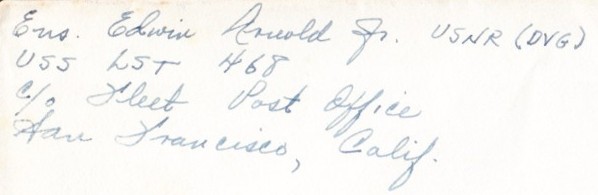 Ens. Edwin Arnold Jr. USNR (DVG)
USS LST 468
c/o Fleet Post Office
San Francisco, Calif.